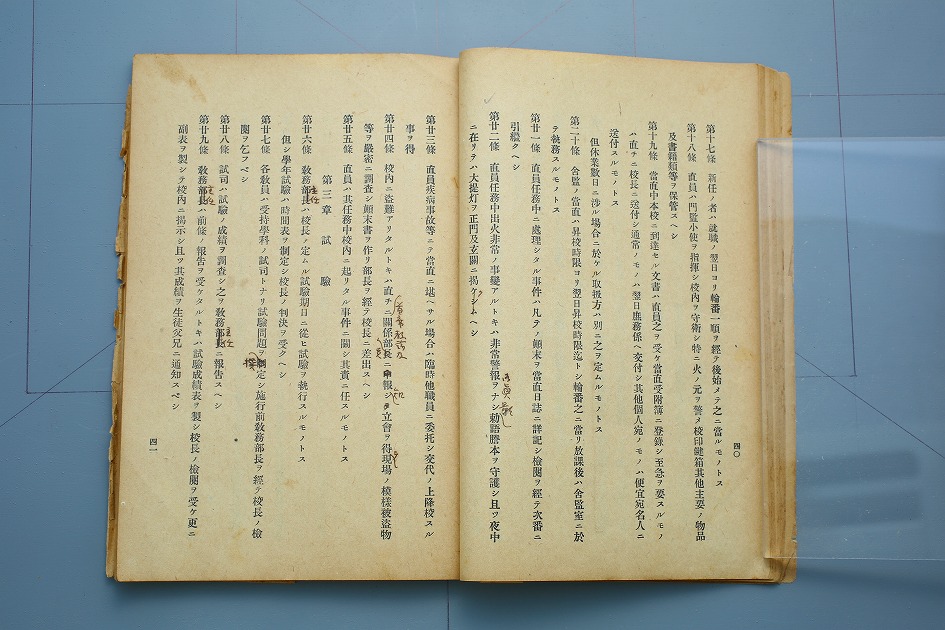 四〇
第十七條 新任ノ者ハ就職ノ翌日ヨリ輪番一順ヲ經テ後始メテ之ニ當ルモノトス
第十八條 直員ハ門監小使ヲ指揮シ校内ヲ守衛シ特ニ火ノ元ヲ警メ校印鍵箱其他主要ノ物品
及書籍類等ヲ保管スヘシ
第十九條 當直中本校ニ到達セル文書ハ直員之ヲ受ケ當直受附簿ニ登錄シ至急ヲ要スルモノ
ハ直チニ校長ニ送付シ通常ノモノハ翌日庶務係ヘ交付シ其他個人宛ノモノハ便宜宛名人ニ
送付スルモノトス
但休業數日ニ涉ル場合ニ於ケル取扱方ハ別ニ之ヲ定ムルモノトス
第二十條 舍監ノ當直ハ昇校時限ヨリ翌日昇校時限迄トシ輪番之ニ當リ放課後ハ舍監室ニ於
テ執務スルモノトス
第廿一條 直員任務中ニ處理シタル事件ハ凡テノ顛末ヲ當直日誌ニ詳記シ檢閲ヲ經テ次番ニ
引繼クヘシ
第廿二條 直員任務中出火非常ノ事變アルトキハ非常警報ヲナシ勅語謄本ヲ守護シ且ツ夜中
ニ在リテハ大提灯ヲ正門及玄關ニ揭ケシムヘシ
第廿三條 直員疾病事故等ニテ當直ニ堪ヘサル場合ハ臨時他職員ニ委托シ交代ノ上降校スル
事ヲ得
第廿四條 校内ニ盜難アリタルトキハ直チニ關係部長ニ申報シ立會ヲ得現場ノ模樣被盜物
等ヲ嚴密ニ調査シ顛末書ヲ作リ部長ヲ經テ校長ニ差出スヘシ
第廿五條 直員ハ其任務中校内ニ起リタル事件ニ關シ其責ニ任スルモノトス
第三章 試驗
第廿六條 敎務部長ハ校長ノ定ムル試驗期日ニ從ヒ試驗ヲ執行スルモノトス
主任
但シ學年試驗ハ時間表ヲ制定シ校長ノ判決ヲ受クヘシ
第廿七條 各敎員ハ受持學科ノ試司トナリ試驗問題ヲ制定シ施行前敎務部長ヲ經テ校長ノ檢
撰
閲ヲ乞フベシ
第廿八條 試司ハ試驗ノ成績ヲ調査シ之ヲ敎務部長ニ報告スヘシ
主任
第廿九條 敎務部長ハ前條ノ報告ヲ受ケタルトキハ試驗成績表ヲ製シ校長ノ檢閲ヲ受ケ更ニ
主任
副表ヲ製シテ校内ニ揭示シ且ツ其成績ヲ生徒父兄ニ通知スベシ
四一